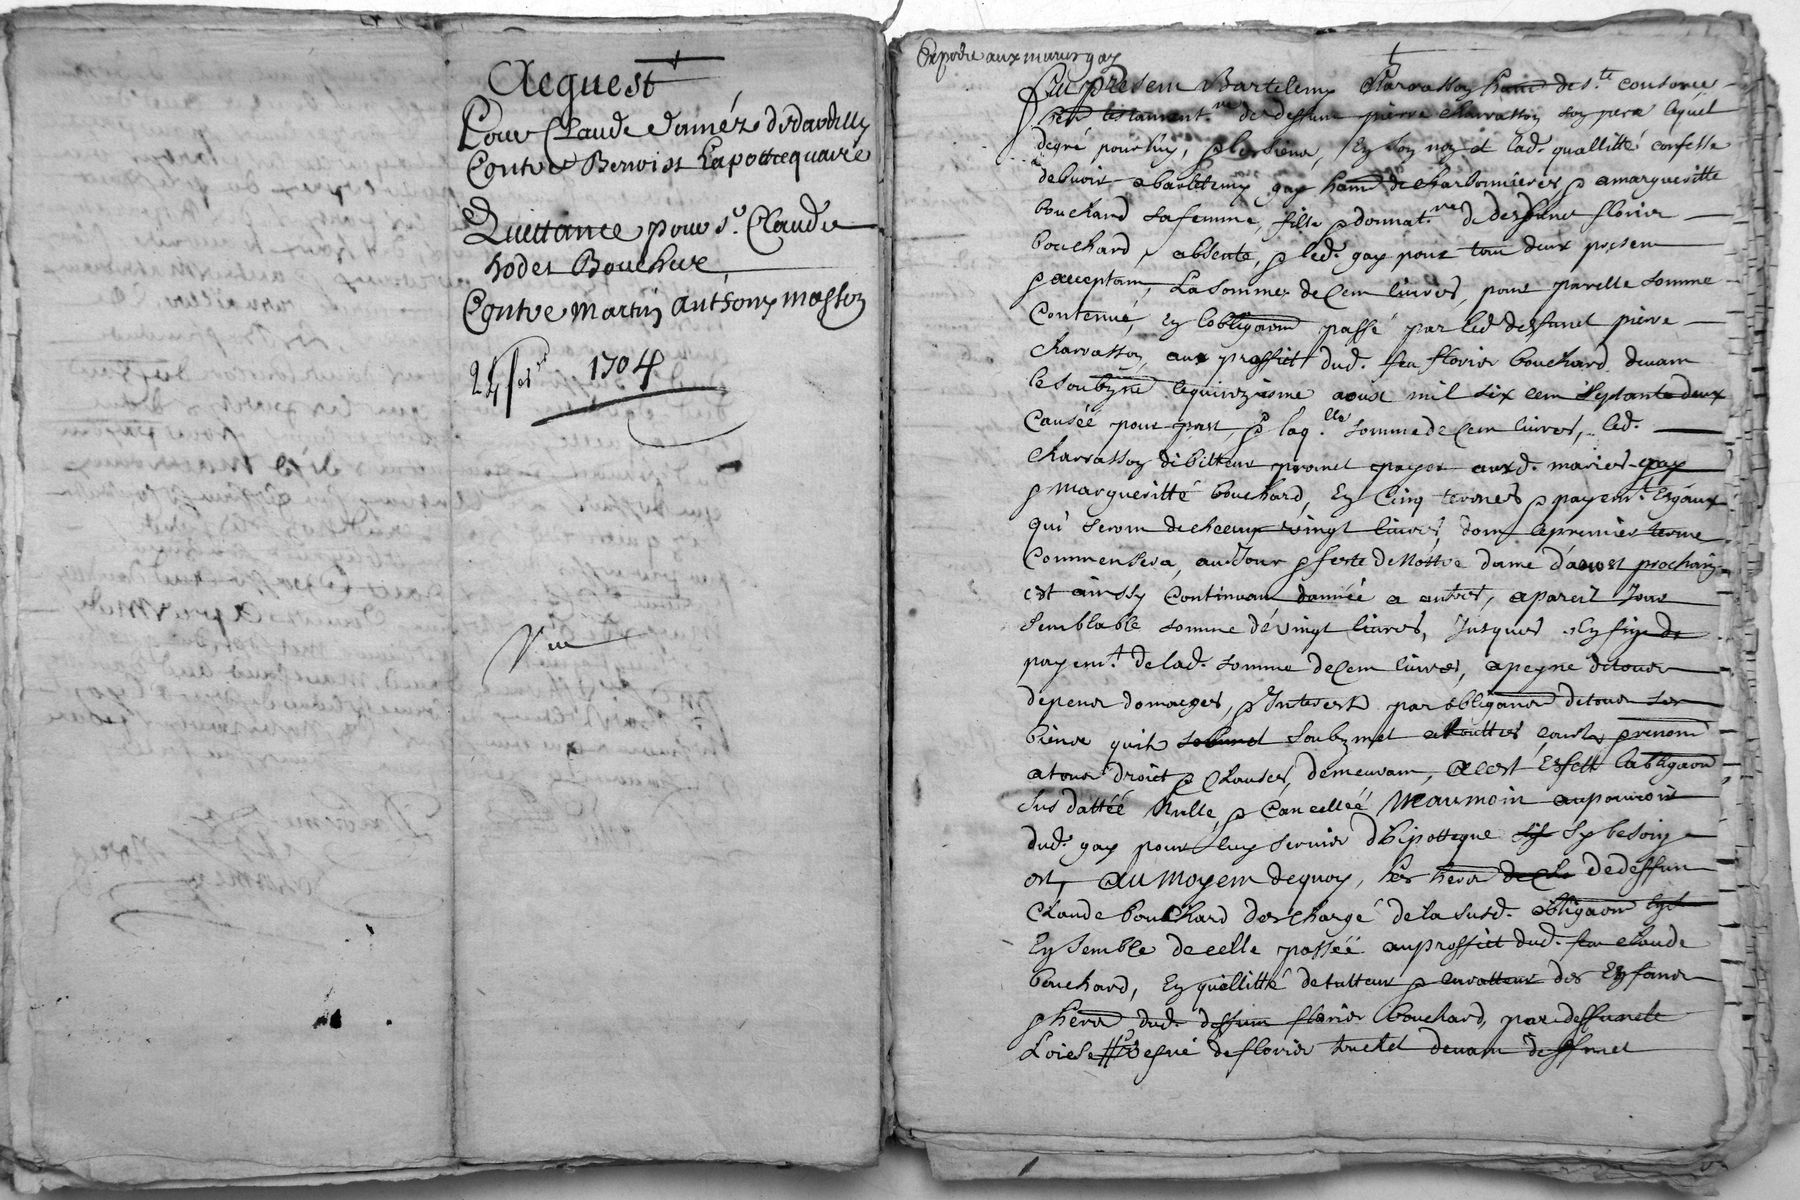 Acquest
Pour Claude Daméz dedardilly
Contre Benoist Lapotticquaire
Quittance pour Sr. Claude
hodet Boucheur
Contre Martin Anthony masson
24 1704
Veu
Expedié aux maries gay
Fut presem Bartelemy Charrasson habit de Ste. Consorce
her testament.re de deffunt pierre charrasson son pere lequel
degré pour luy, & les siens, En son nom et lad. quallitté confesse
debuoir a bartelemy gay habit de charbonnieres & a margueritte
bouchard sa femme, fille & donnat.re de deffunct florior
bouchard, absente, & led. gay pour tou deux presem
& acceptam, La somme de Cem livres, pour pareille somme
Contenué, En lobligaon passé par led deffunct pierre
charrasson, aux proffict dud. feu florior bouchard devam
le soubzné le quinzieme aoust mil six cem septante deux
Causéé pour prest, & laq.lle somme de Cem livres, led.
charrasson debitteur promet payer auxd. maries gay
& Margueritté bouchard, En Cinq termes & payemt. Esgaux
qui serom de checun vingt livres, dom le premier terme
Commensera, au Jour & feste de Nostre dame d'aoust prochain
est ainssy Continuam dannéé a autres, a pareil Jour
semblable somme dé vingt livres, Jusques En fin de
payemt. de lad. somme de Cem livres, a peyne de tous
depens domages, & Interests par obligaon de tous ses
biens quil soubzmet a touttes cours
a tous droict & Clauses, demeuram, a cest Effett lobligaon
sus dattéé Nulle, & Cancelléé Neaumoin au pouvoir
dud. gay pour luy servir dhipotteque sy besoin
est, au moyem de quoy, les hers de deffunt
Claude bouchard deschargé de la susd. obligaon
Ensemble de celle passéé au proffict dud. feu claude
bouchard, En quallitté de tutteur & curatteur des Enfans
& hers dud. deffunt florior bouchard, par deffuncte
Loiese vesvé de florior truchet devam deffunct